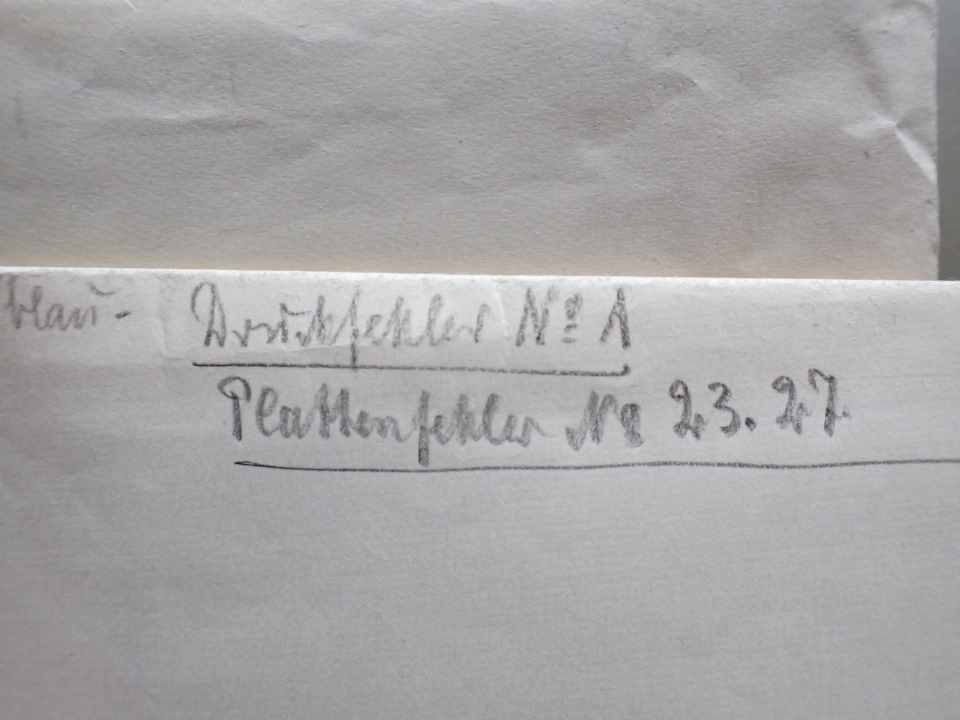 blau- Druckfehler Nº 1
Plattenfehler Nº 23. 27.